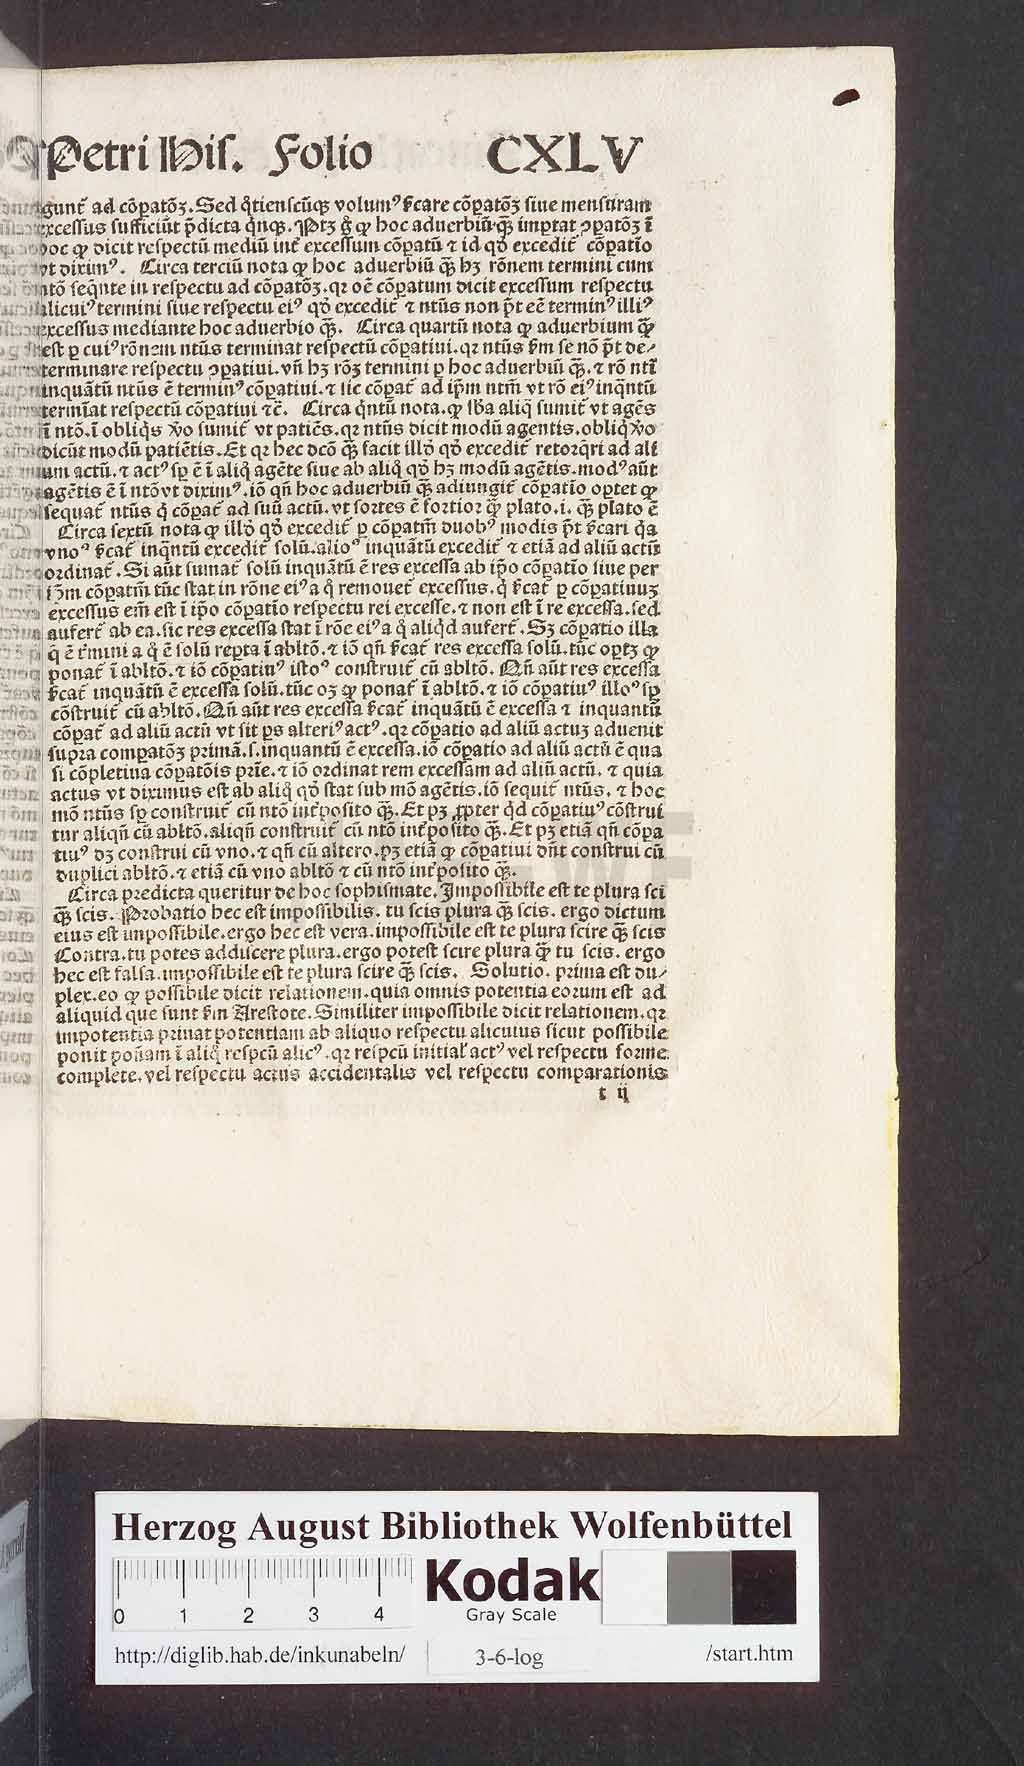 Petri His. Folio CXLV
gunt̃ ad cõꝑatõꝫ. Sed q̊tienscũqꝫ volumꝰ ẜcare cõꝑatõꝫ siue mensuram
excessus sufficiũt p̃dicta q̃nqꝫ. Ptꝫ g̊ ꝙ hoc aduerbiũ q̃ꝫ imꝑtat ꝯꝑatõꝫ ĩ
hoc ꝙ dicit respectũ mediũ int̃ excessum cõꝑatũ ⁊ id qď excedit̃ cõꝑatio
vt diximꝰ. Circa terciũ nota ꝙ hoc aduerbiũ q̃ꝫ hꝫ rõnem termini cum
ntõ seq̃nte in respectu ad cõꝑatõꝫ. qꝛ oẽ cõꝑatum dicit excessum respectu
alicuiꝰ termini siue respectu eiꝰ qď excedit̃ ⁊ ntũs non p̃t eẽ terminꝰ illiꝰ
excessus mediante hoc aduerbio q̃ꝫ. Circa quartũ nota ꝙ aduerbium q̃ꝫ
est ꝑ cuiꝰ rõnem ntũs terminat respectũ cõꝑatiui. qꝛ ntũs ẜm se nõ p̃t de⸗
terminare respectu ꝯꝑatiui. vñ hꝫ rõꝫ termini ꝑ hoc aduerbiũ q̃ꝫ. ⁊ rõ ntĩ
inquãtũ ntũs ẽ terminꝰ cõꝑatiui. ⁊ sic cõꝑat̃ ad ip̃m ntm̃ vt rõ eiꝰ inq̃ntũ
termĩat respectũ cõꝑatiui ⁊c̃. Circa q̃ntũ nota. ꝙ ẜba aliq̃ sumit̃ vt agẽs
ĩ ntõ. ĩ obliq̃s v̊o sumit̃ vt patiẽs. qꝛ ntũs dicit modũ agentis. obliq̃ v̊o
dicũt modũ patiẽtis. Et qꝛ hec dcõ q̃ꝫ facit illď qď excedit̃ retorq̃ri ad ali
um actũ. ⁊ actꝰ sꝑ ẽ ĩ aliq̊ agẽte siue ab aliq̊ qď hꝫ modũ agẽtis. modꝰ aũt
agẽtis ẽ ĩ ntõ vt diximꝰ. iõ qñ hoc aduerbiũ q̃ꝫ adiungit̃ cõꝑatio oꝑtet ꝙ
sequat̃ ntũs q̊ cõꝑat̃ ad suũ actũ. vt sortes ẽ fortior q̃ꝫ plato. i. q̃ꝫ plato ẽ
Circa sextũ nota ꝙ illď qď excedit̃ ꝑ cõꝑatm̃ duobꝰ modis p̃t ẜcari q̊a
vnoꝰ ẜcat̃ inq̃ntũ excedit̃ solũ. alioꝰ inquãtũ excedit̃ ⁊ etiã ad aliũ actũ
ordinat̃. Si aũt sumat̃ solũ inquãtũ ẽ res excessa ab ip̃o cõꝑatio siue per
ip̃m cõꝑatm̃ tũc stat in rõne eiꝰ a q̊ remouet̃ excessus. q̊ ẜcat̃ ꝑ cõꝑatiuuꝫ
excessus em̃ est ĩ ip̃o cõꝑatio respectu rei excesse. ⁊ non est ĩ re excessa. sed
aufert̃ ab ea. sic res excessa stat ĩ rõe eiꝰ a q̊ aliq̃d aufert̃. Sꝫ cõꝑatio illa
q̃ ẽ t̃mini a q̊ ẽ solũ reꝑta ĩ abltõ. ⁊ iõ qñ ẜcat̃ res excessa solũ. tũc oꝑtꝫ ꝙ
ponat̃ ĩ abltõ. ⁊ iõ cõꝑatiuꝰ istoꝰ construit̃ cũ abltõ. Qñ aũt res excessa
ẜcat̃ inquãtũ ẽ excessa solũ. tũc oꝫ ꝙ ponat̃ ĩ abltõ. ⁊ iõ cõꝑatiuꝰ illoꝰ sꝑ
cõstruit̃ cũ abltõ. Qñ aũt res excessa ẜcat̃ inquãtũ ẽ excessa ⁊ inquantũ
cõꝑat̃ ad aliũ actũ vt sit ꝑs alteriꝰ actꝰ. qꝛ cõꝑatio ad aliũ actuꝫ aduenit
supra comparatõꝫ primã. s. inquantũ ẽ excessa. iõ cõꝑatio ad aliũ actũ ẽ qua
si cõpletiua cõꝑatõis prĩe. ⁊ iõ ordinat rem excessam ad aliũ actũ. ⁊ quia
actus vt diximus est ab aliq̊ qď stat sub mõ agẽtis. iõ sequit̃ ntũs. ⁊ hoc
mõ ntũs sꝑ construit̃ cũ ntõ int̃posito q̃ꝫ. Et pꝫ ꝓpter q̃d cõꝑatiuꝰ cõstrui
tur aliqñ cũ abltõ. aliqñ construit̃ cũ ntõ int̃posito q̃ꝫ. Et pꝫ etiã qñ cõpa
tiuꝰ dꝫ construi cũ vno. ⁊ qñ cũ altero. pꝫ etiã ꝙ cõꝑatiui dñt construi cũ
duplici abltõ. ⁊ etiã cũ vno abltõ ⁊ cũ ntõ int̃posito q̃ꝫ.
Circa predicta queritur de hoc sophismate. Impossibile est te plura sci
q̃ꝫ scis. Probatio hec est impossibilis. tu scis plura q̃ꝫ scis. ergo dictum
eius est impossibile. ergo hec est vera. impossibile est te plura scire q̃ꝫ scis
Contra. tu potes addiscere plura. ergo potest scire plura q̃ꝫ tu scis. ergo
hec est falsa. impossibile est te plura scire q̃ꝫ scis. Solutio. prima est du⸗
plex. eo ꝙ possibile dicit relationem. quia omnis potentia eorum est ad
aliquid que sunt ẜm Arestote. Similiter impossibile dicit relationem. qꝛ
impotentia priuat potentiam ab aliquo respectu alicuius sicut possibile
ponit poñam ĩ aliq̊ respcũ alicꝰ. qꝛ respcũ initiaľ actꝰ vel respectu forme
complete. vel respectu actus accidentalis vel respectu comparationis
t ij
Herzog August Bibliothek Wolfenbüttel
0 1 2 3 4
Kodak
Gray Scale
http://diglib.hab.de/inkunabeln/ 3-6-log /start.htm